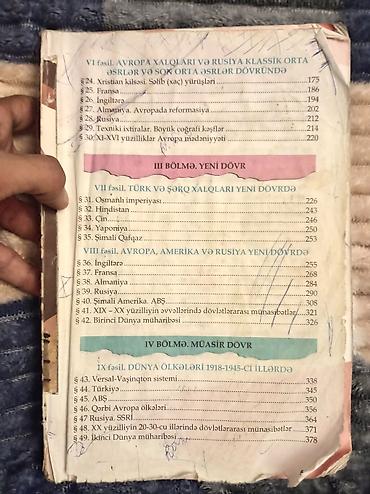 VI fəsil. AVROPA XALQLARI VƏ RUSİYA KLASSİK ORTA
ƏSRLƏR VƏ SON ORTA ƏSRLƏR DÖVRÜNDƏ
§ 24. Xristian kilsəsi. Səlib (xaç) yürüşləri 175
§ 25. Fransa 186
§ 26. İngiltərə 194
§ 27. Almaniya. Avropada reformasiya 202
§ 28. Rusiya 212
§ 29. Texniki ixtiralar. Böyük coğrafi kəşflər 214
§ 30. XI-XVI yüzilliklər Avropa mədəniyyəti 220
III BÖLMƏ. YENİ DÖVR
VII fəsil. TÜRK VƏ ŞƏRQ XALQLARI YENİ DÖVRDƏ
§ 31. Osmanlı imperiyası 226
§ 32. Hindistan 243
§ 33. Çin 246
§ 34. Yaponiya 250
§ 35. Şimali Qafqaz 253
VIII fəsil. AVROPA, AMERİKA VƏ RUSİYA YENİ DÖVRDƏ
§ 36. İngiltərə 255
§ 37. Fransa 268
§ 38. Almaniya 284
§ 39. Rusiya 290
§ 40. Şimali Amerika. ABŞ 308
§ 41. XIX – XX yüzilliyin əvvəllərində dövlətlərarası münasibətlər 321
§ 42. Birinci Dünya müharibəsi 326
IV BÖLMƏ. MÜASİR DÖVR
IX fəsil. DÜNYA ÖLKƏLƏRİ 1918-1945-Cİ İLLƏRDƏ
§ 43. Versal-Vaşinqton sistemi 338
§ 44. Türkiyə 345
§ 45. ABŞ 350
§ 46. Qərbi Avropa ölkələri 356
§ 47 Rusiya. SSRİ 364
§ 48. XX yüzilliyin 20-30-cu illərində dövlətlərarası münasibətlər 371
§ 49. İkinci Dünya müharibəsi 378